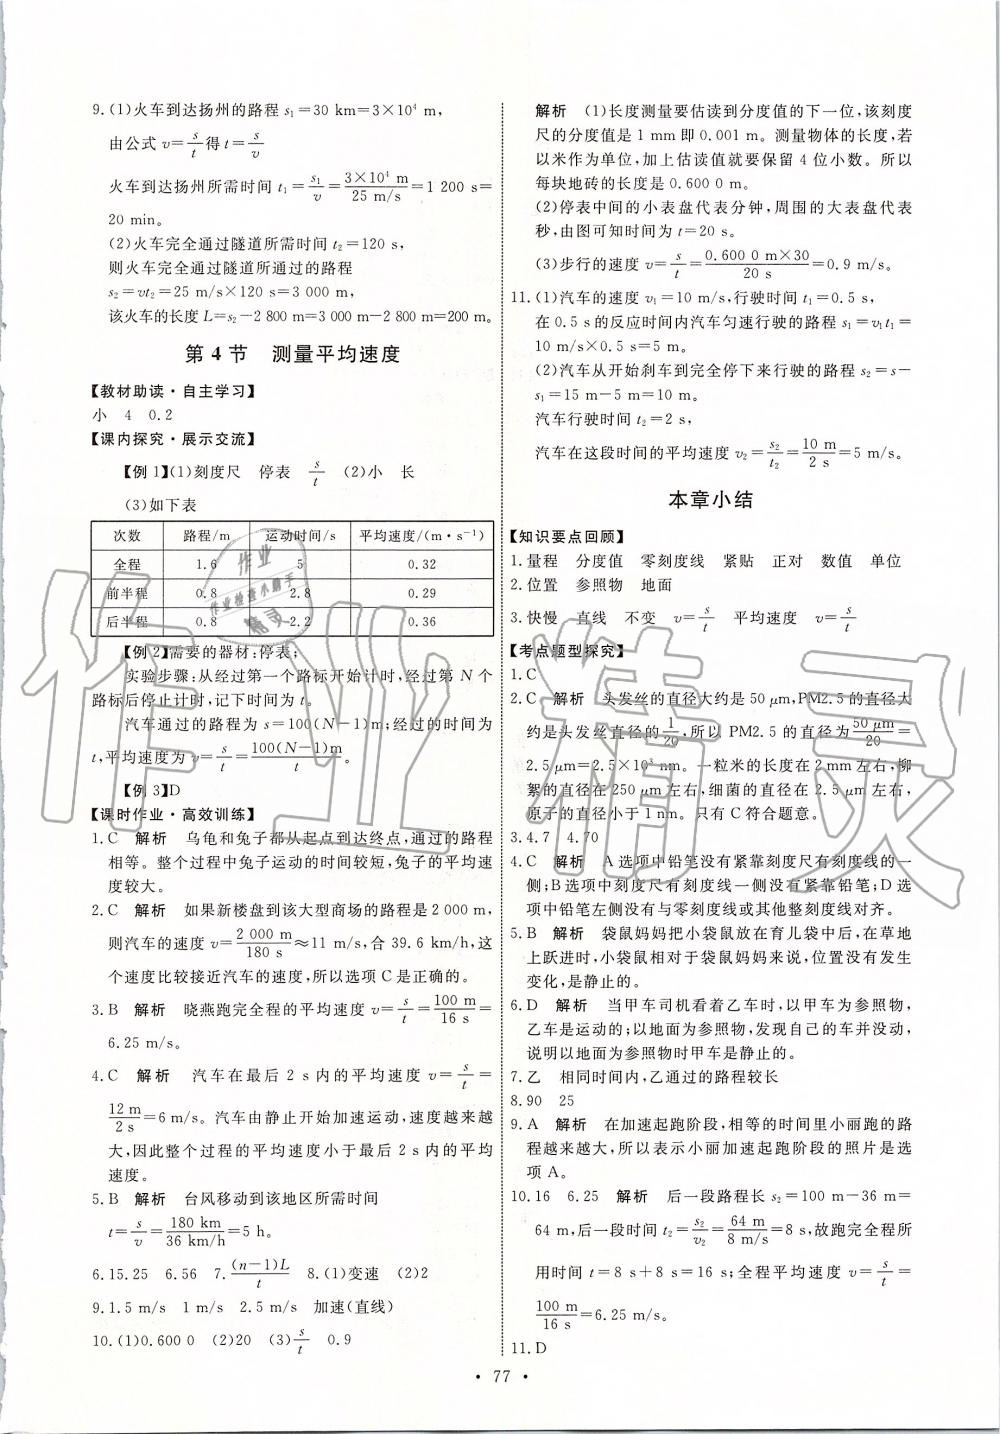 9.(1)火车到达扬州的路程 s₁=30 km=3×10⁴ m,
由公式 v=s/t得 t=s/v
火车到达扬州所需时间 t₁=s₁/v=3×10⁴ m/25 m/s=1 200 s=
20 min。
(2)火车完全通过隧道所需时间 t₂=120 s,
则火车完全通过隧道所通过的路程
s₂=vt₂=25 m/s×120 s=3 000 m,
该火车的长度 L=s₂-2 800 m=3 000 m-2 800 m=200 m。
第 4 节 测量平均速度
【教材助读·自主学习】
小 4 0.2
【课内探究·展示交流】
【例 1】(1)刻度尺 停表 s/t (2)小 长
(3)如下表
次数 路程/m 运动时间/s 平均速度/(m·s⁻¹)
全程 1.6 5 0.32
前半程 0.8 2.8 0.29
后半程 0.8 2.2 0.36
【例 2】需要的器材:停表;
实验步骤:从经过第一个路标开始计时,经过第 N 个
路标后停止计时,记下时间为 t。
汽车通过的路程为 s=100(N-1)m;经过的时间为
t,平均速度为 v=s/t=100(N-1)m/t。
【例 3】D
【课时作业·高效训练】
1.C 解析 乌龟和兔子都从起点到达终点,通过的路程
相等。整个过程中兔子运动的时间较短,兔子的平均速
度较大。
2.C 解析 如果新楼盘到该大型商场的路程是 2 000 m,
则汽车的速度 v=2 000 m/180 s≈11 m/s,合 39.6 km/h,这
个速度比较接近汽车的速度,所以选项 C 是正确的。
3.B 解析 晓燕跑完全程的平均速度 v=s/t=100 m/16 s=
6.25 m/s。
4.C 解析 汽车在最后 2 s 内的平均速度 v=s/t=
12 m/2 s=6 m/s。汽车由静止开始加速运动,速度越来越
大,因此整个过程的平均速度小于最后 2 s 内的平均
速度。
5.B 解析 台风移动到该地区所需时间
t=s/v=180 km/36 km/h=5 h。
6.15.25 6.56 7.(n-1)L/t 8.(1)变速 (2)2
9.1.5 m/s 1 m/s 2.5 m/s 加速(直线)
10.(1)0.600 0 (2)20 (3)s/t 0.9
解析 (1)长度测量要估读到分度值的下一位,该刻度
尺的分度值是 1 mm 即 0.001 m。测量物体的长度,若
以米作为单位,加上估读值就要保留 4 位小数。所以
每块地砖的长度是 0.600 0 m。
(2)停表中间的小表盘代表分钟,周围的大表盘代表
秒,由图可知时间为 t=20 s。
(3)步行的速度 v=s/t=0.600 0 m×30/20 s=0.9 m/s。
11.(1)汽车的速度 v₁=10 m/s,行驶时间 t₁=0.5 s,
在 0.5 s 的反应时间内汽车匀速行驶的路程 s₁=v₁t₁=
10 m/s×0.5 s=5 m。
(2)汽车从开始刹车到完全停下来行驶的路程 s₂=s-
s₁=15 m-5 m=10 m。
汽车行驶时间 t₂=2 s,
汽车在这段时间的平均速度 v₂=s₂/t₂=10 m/2 s=5 m/s。
本章小结
【知识要点回顾】
1.量程 分度值 零刻度线 紧贴 正对 数值 单位
2.位置 参照物 地面
3.快慢 直线 不变 v=s/t 平均速度 v=s/t
【考点题型探究】
1.C
2.C 解析 头发丝的直径大约是 50 μm,PM2.5 的直径大
约是头发丝直径的1/20,所以 PM2.5 的直径为50 μm/20=
2.5 μm=2.5×10³ nm。一粒米的长度在 2 mm 左右,柳
絮的直径在 250 μm 左右,细菌的直径在 2.5 μm 左右,
原子的直径小于 1 nm。只有 C 符合题意。
3.4.7 4.70
4.C 解析 A 选项中铅笔没有紧靠刻度尺有刻度线的一
侧;B 选项中刻度尺有刻线一侧没有紧靠铅笔;D 选
项中铅笔左侧没有与零刻度线或其他整刻度线对齐。
5.B 解析 袋鼠妈妈把小袋鼠放在育儿袋中后,在草地
上跃进时,小袋鼠相对于袋鼠妈妈来说,位置没有发生
变化,是静止的。
6.D 解析 当甲车司机看着乙车时,以甲车为参照物,
乙车是运动的;以地面为参照物,发现自己的车并没动,
说明以地面为参照物时甲车是静止的。
7.乙 相同时间内,乙通过的路程较长
8.90 25
9.A 解析 在加速起跑阶段,相等的时间里小丽跑的路
程越来越大,所以表示小丽加速起跑阶段的照片是选
项 A。
10.16 6.25 解析 后一段路程长 s₂=100 m-36 m=
64 m,后一段时间 t₂=s₂/v₂=64 m/8 m/s=8 s,故跑完全程所
用时间 t=8 s+8 s=16 s;全程平均速度 v=s/t=
100 m/16 s=6.25 m/s。
11.D
·77·
作业精灵
作业
作业检查小助手
精灵